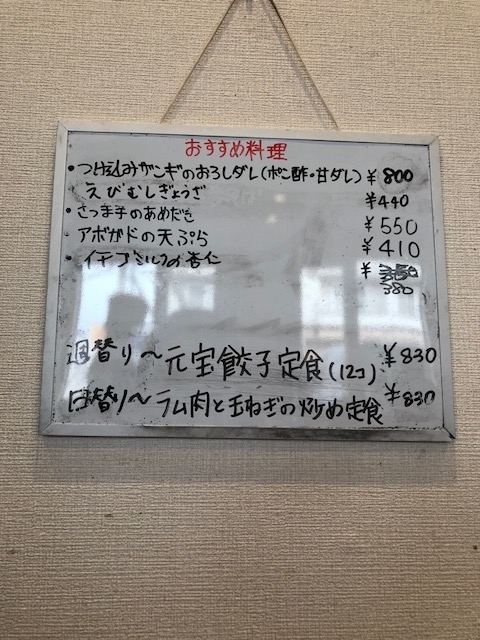 おすすめ料理
・つけ込みザンギのおろしダレ(ポン酢・甘ダレ) ¥800
えびむしぎょうざ ¥440
・さつま子のあめだき ¥550
アボガドの天ぷら ¥410
・イチゴミルクの杏仁 ¥350
380
週替り〜元宝餃子定食(12コ) ¥830
日替り〜ラム肉と玉ねぎの炒め定食 ¥830